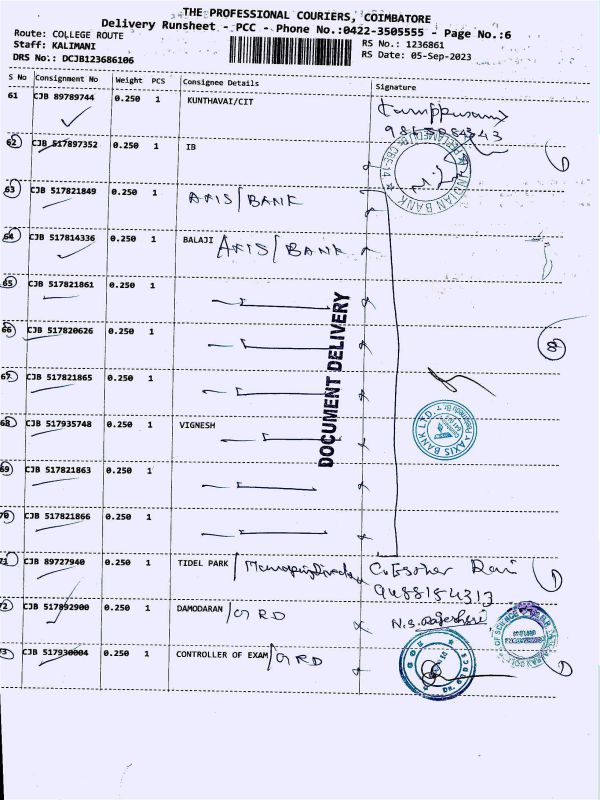 THE PROFESSIONAL COURIERS, COIMBATORE
Delivery Runsheet - PCC - Phone No.:0422-3505555 - Page No.:6
Route: COLLEGE ROUTE
RS No.: 1236861
Staff: KALIMANI
RS Date: 05-Sep-2023
DRS No.: DCJB123686106
S No Consignment No Weight PCS Consignee Details Signature
61 CJB 89789744 0.250 1 KUNTHAVAI/CIT
62 CJB 517897352 0.250 1 IB
INDIAN BANK
63 CJB 517821849 0.250 1 AXIS/BANK
64 CJB 517814336 0.250 1 BALAJI AXIS/BANK
65 CJB 517821861 0.250 1
66 CJB 517820626 0.250 1
8
67 CJB 517821865 0.250 1
68 CJB 517935748 0.250 1 VIGNESH
AXIS BANK LTD
DOCUMENT DELIVERY
69 CJB 517821863 0.250 1
70 CJB 517821866 0.250 1
71 CJB 89727940 0.250 1 TIDEL PARK/ C. Esther Rani
9488154313
72 CJB 517892900 0.250 1 DAMODARAN/GRD N.S. Rajeshwari
73 CJB 517930004 0.250 1 CONTROLLER OF EXAM/GRD